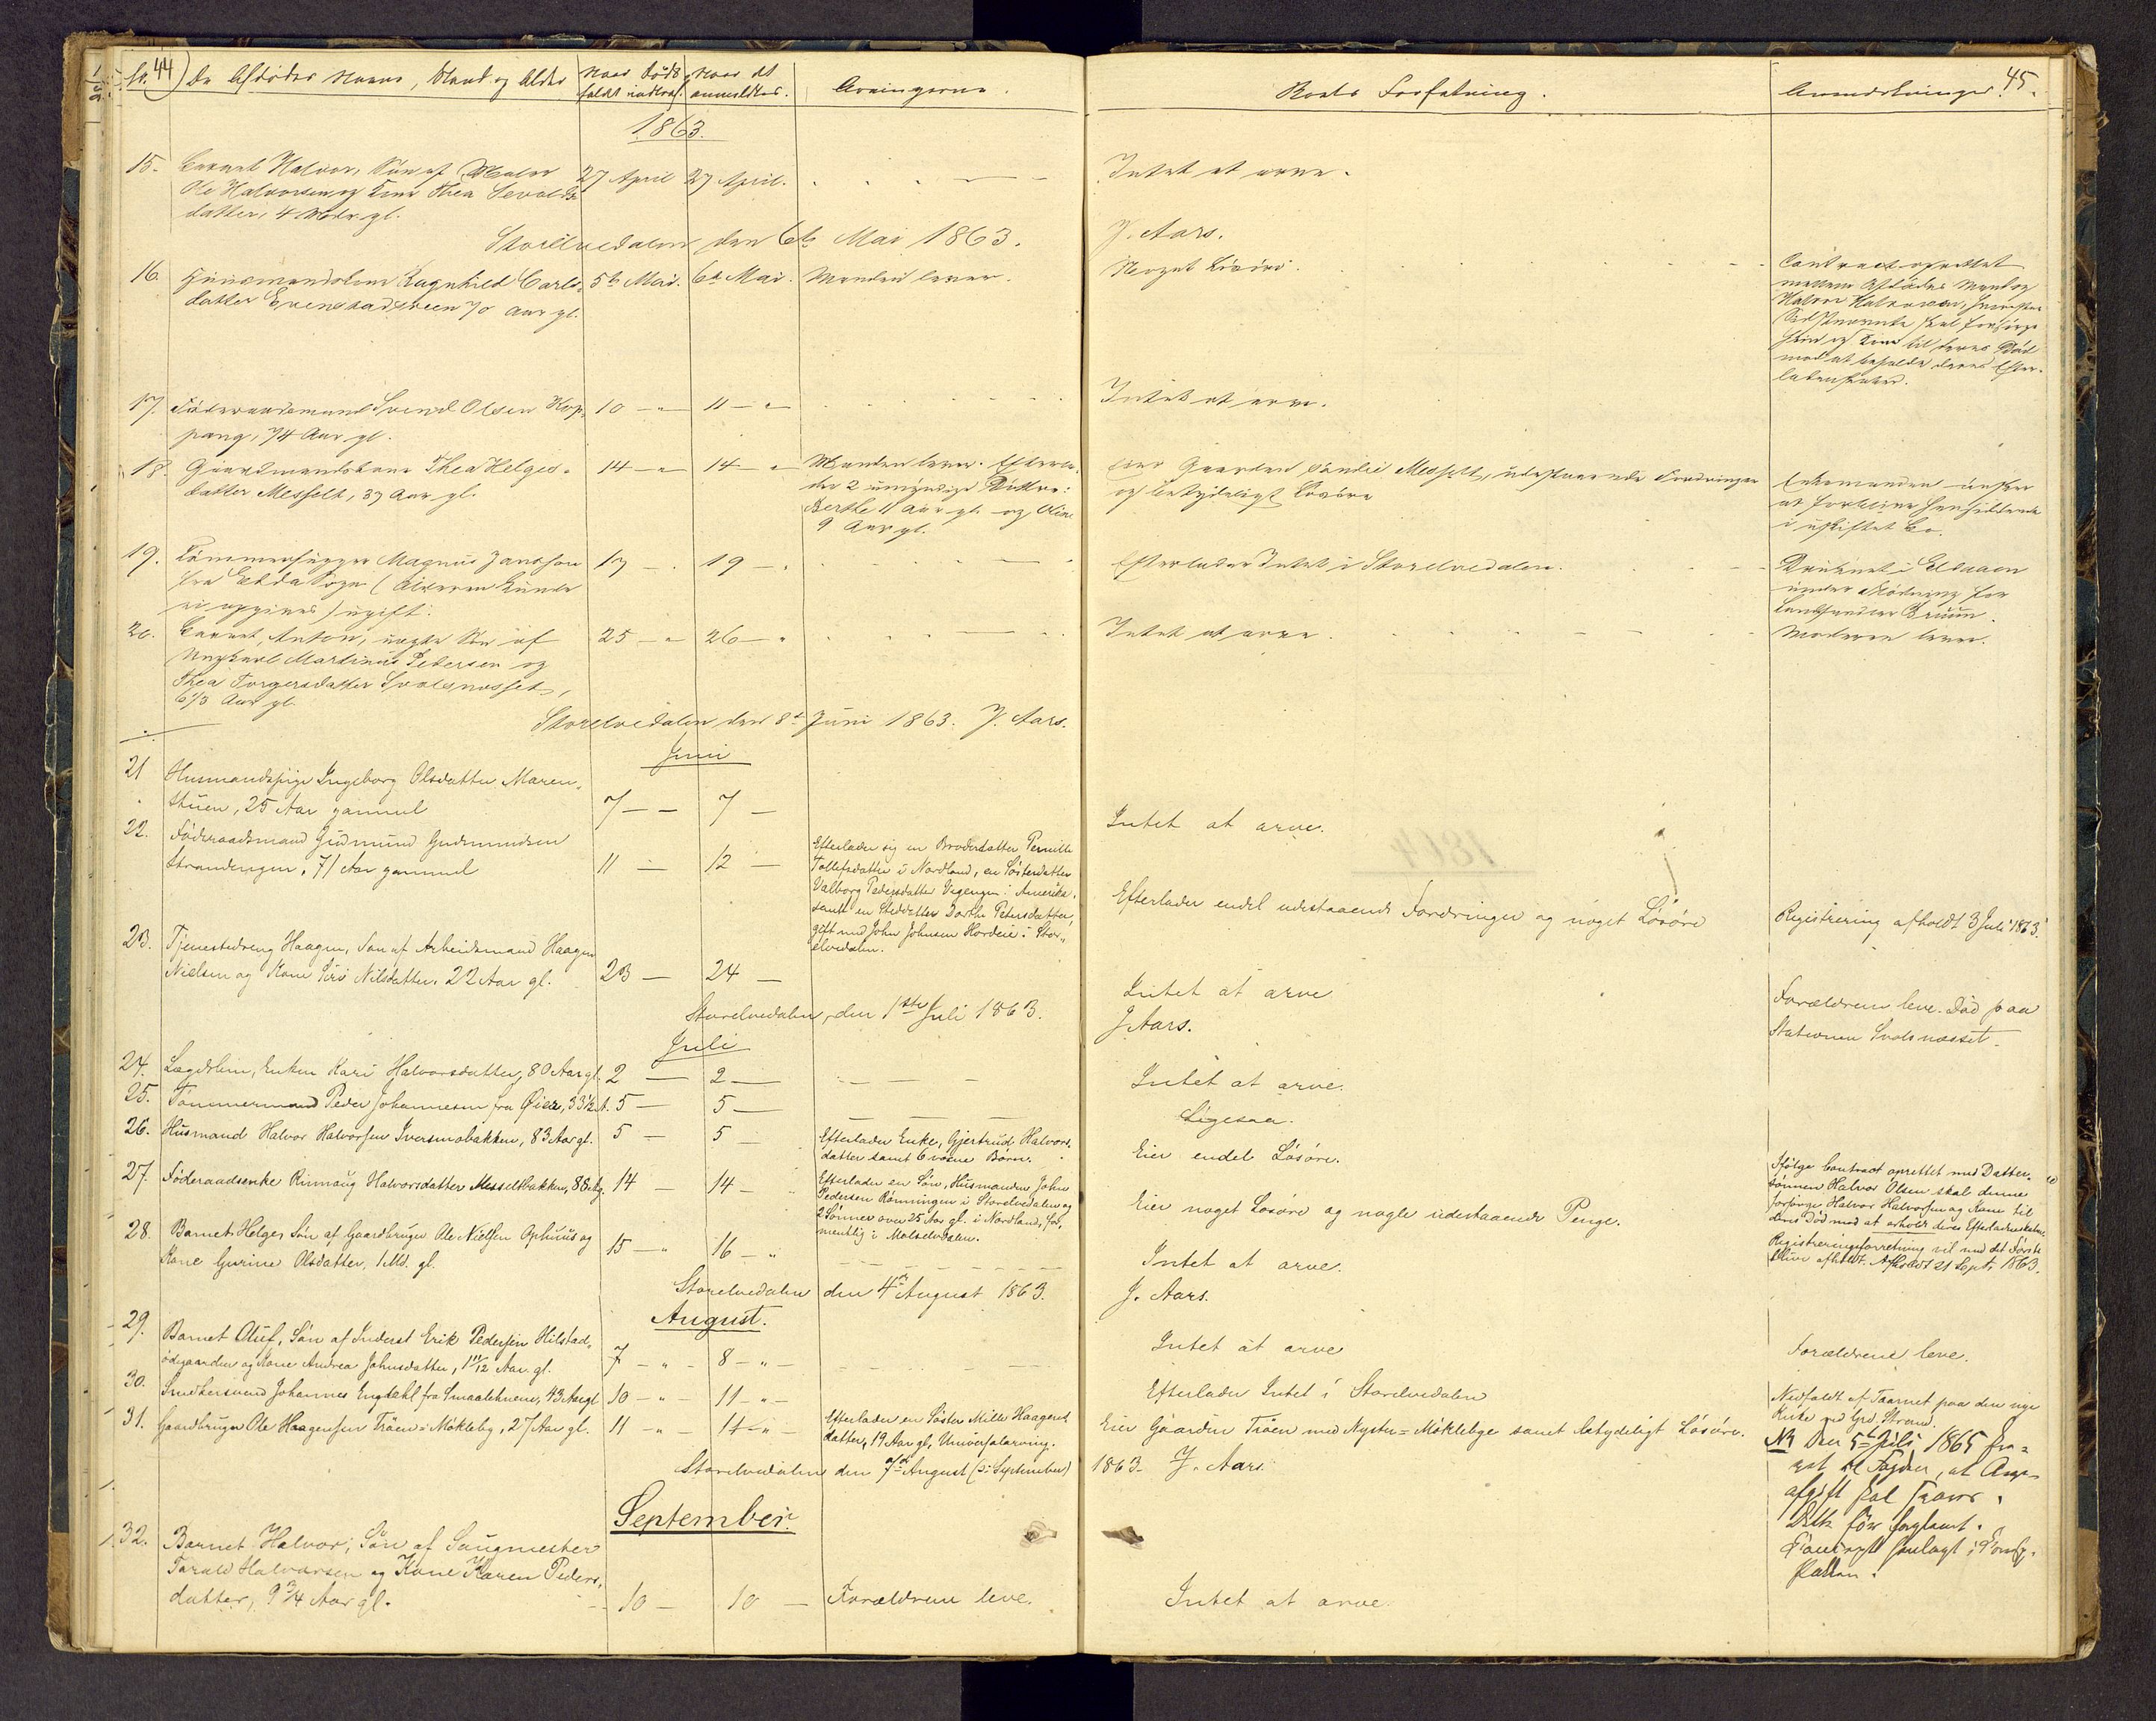 44
No. De Afdødes Navne, Stand og Alder
Naar Døds-
faldet indtraf.
Naar det
anmeldtes.
Arvingerne.
Boets Forfatning.
Anmærkninger.
45.
1863.
15.
Barnet Halvor, Søn af
Ole Halvorsen og Kone Thea Sevalds
datter, 4 Mdr gl.
27 April
27 April.
Intet at arve.
Storelvedalen den 6te Mai 1863.
J. Aars.
16.
Huusmandskone Ragnhild Carls-
datter Evenstadsveen 70 Aar gl.
5te Mai.
6te Mai.
Manden lever.
Noget Løsøre.
Contract oprettet
mellem Afdødes Mand og
Halvor Halvorsen, hvorefter
Sidstnævnte skal forsørge
Ham og Kone til deres Død
mod at beholde deres Efter-
ladenskaber.
17.
Føderaadsmand Svend Olsen Kop-
pang, 74 Aar gl.
10 — "
11 — "
Intet at arve.
18.
Gaardmandskone Thea Helges-
datter Messelt, 39 Aar gl.
14 — "
14 — "
Manden lever. Efterla-
der 2 umyndige Døttre:
Berthe 11 Aar gl. og Oline
9 Aar gl.
Eier Gaarden Søndre Messelt, udestaaende Fordringer
og betydeligt Løsøre
Enkemanden ønsker
at forblive hensiddende
i uskiftet Bo.
19.
Tømmerhugger Magnus Jansson
fra Ekshda Sogn (Alderen kunde
ei opgives) ugift.
17 — "
19 — "
Efterlader Intet i Storelvedalen.
Druknet i Elvaaen
under Flødning for
Landhandler Bruun.
20.
Barnet Anton, uægte Søn af
Ungkarl Martinus Petersen og
Thea Torgersdatter Svolsnæsset,
6 1/3 Aar gl.
25 — "
26 — "
Intet at arve.
Moderen lever.
Storelvedalen den 8de Juni 1863. J. Aars.
Juni
21
Husmandspige Ingeborg Olsdatter Maren-
stuen, 25 Aar gammel
7 — —
7 —
Intet at arve.
22.
Føderaadsmand Gudmund Gudmundsen
Strandengen, 71 Aar gammel
11 —
12 —
Efterlader sig en Broderdatter Pernille
Tollefsdatter i Nordland, en Søsterdatter
Valborg Pedersdatter Vegengen i Amerika,
samt en Steddatter Dorthe Petersdatter,
gift med John Johnsen Hordeie i Stor-
elvedalen.
Efterlader endel udestaaende Fordringer og noget Løsøre
Registrering afholdt 3 Juli 1863.
23.
Tjenestedreng Haagen, Søn af Arbeidsmand Haagen
Nielsen og Kone Siri Nilsdatter, 22 Aar gl.
23 —
24 —
Intet at arve
Forældrene leve. Død paa
Stationen Svolsnæsset.
Storelvedalen, den 1ste Juli 1863.
J. Aars.
Juli
24.
Lægdslem, Enken Kari Halvorsdatter, 80 Aar gl.
2 —
2 —
Intet at arve.
25.
Tømmermand Peder Johannesen fra Øier, 33 1/2 A.
5 —
5 —
Ligesaa.
26.
Husmand Halvor Halvorsen Iversmobakken, 83 Aar gl.
5 —
5 —
Efterlader Enke, Gjertrud Halvors-
datter samt 6 voxne Børn.
Eier endel Løsøre.
Ifølge Contract oprettet med Datter-
sønnen Halvor Olsen skal denne
forsørge Halvor Halvorsen og Kone til
deres Død mod at erholde deres Efterladenskaber.
27.
Føderaadsenke Rimaug Halvorsdatter Messeltbakken, 88 Ag.
14 —
14 —
Efterlader en Søn, Husmanden John
Pedersen Rønningen i Storelvedalen og
2 Sønner over 25 Aar gl. i Nordland, for-
mentlig i Malselvdalen.
Eier noget Løsøre og nogle udestaaende Penge.
Registreringsforretning vil med det Første
blive afholdt. Afholdt 21 Sept. 1863.
28.
Barnet Helge, Søn af Gaardbruger Ole Nielsen Ophuus og
Kone Gurine Olsdatter, 1 Md. gl.
15 — "
16 — "
Intet at arve.
Storelvedalen den 4de August 1863.
J. Aars.
August.
29.
Barnet Oluf, Søn af Inderst Erik Pedersen Hilstad-
ødegaarden og Kone Andrea Johnsdatter, 1 11/12 Aar gl.
7 — " —
8 — " —
Intet at arve
Forældrene leve.
30.
Snedkersvend Johannes Engdahl fra Smaalehnene, 43 Aar gl
10 — " —
11 — " —
Efterlader Intet i Storelvedalen
Nedfaldt af Taarnet paa den nye
Kirke ved Grd. Strand.
31.
Gaardbruger Ole Haagensen Trøen i Møkleby, 27 Aar gl.
11 — " —
14 — " —
Efterlader en Søster Mille Haagens-
datter, 19 Aar gl, Universalarving.
Eier Gaarden Trøen med Nyster-Møklebye samt betydeligt Løsøre.
NB Den 5te Juli 1865 
 til Fogden, at Arve-
afgift skal svares.
Dette før forglemt.
Storelvedalen den 7de August (ɔ: September)
1863. J. Aars.
September.
32.
Barnet Halvor, Søn af Saugmester
Tarald Halvorsen og Kone Karen Peders-
datter, 9 3/4 Aar gl.
10 —
10 —
Forældrene leve.
Intet at arve.